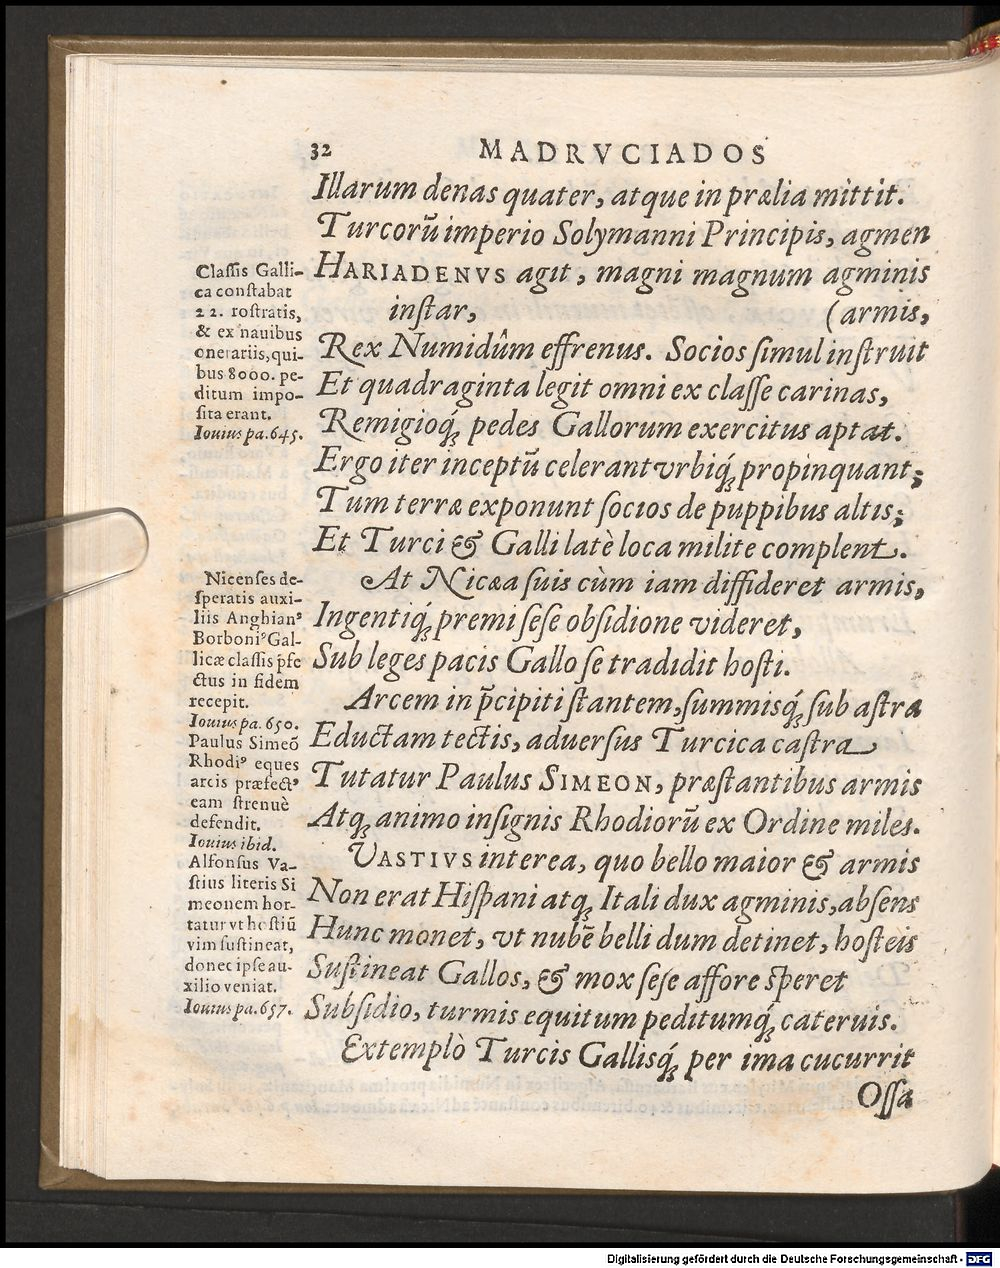 32 MADRVCIADOS
Illarum denas quater, atque in prælia mittit.
Turcorũ imperio Solymanni Principis, agmen
HARIADENVS agit, magni magnum agminis
instar, (armis,
Rex Numidûm effrenus. Socios simul instruit
Et quadraginta legit omni ex classe carinas,
Remigioq́; pedes Gallorum exercitus aptat.
Ergo iter inceptũ celerant vrbiq́; propinquant;
Tum terræ exponunt socios de puppibus altis;
Et Turci & Galli latè loca milite complent.
At Nicæa suis cùm iam diffideret armis,
Ingentiq́; premi sese obsidione videret,
Sub leges pacis Gallo se tradidit hosti.
Arcem in p̃cipiti stantem, summisq́; sub astra
Eductam tectis, aduersus Turcica castra
Tutatur Paulus SIMEON, præstantibus armis
Atq; animo insignis Rhodiorũ ex Ordine miles.
VASTIVS interea, quo bello maior & armis
Non erat Hispani atq; Itali dux agminis, absens
Hunc monet, vt nubẽ belli dum detinet, hosteis
Sustineat Gallos, & mox sese affore speret
Subsidio, turmis equitum peditumq́; cateruis.
Extemplò Turcis Gallisq́; per ima cucurrit
Ossa
Classis Galli-
ca constabat
22. rostratis,
& ex nauibus
onerariis, qui-
bus 8000. pe-
ditum impo-
sita erant.
Iouius pa. 645.
Nicenses de-
speratis auxi-
liis Anghianꝰ
Borboniꝰ Gal-
licæ classis p̃fe
ctus in fidem
recepit.
Iouius pa. 650.
Paulus Simeõ
Rhodiꝰ eques
arcis præfectꝰ
eam strenuè
defendit.
Iouius ibid.
Alfonsus Va-
stius literis Si
meonem hor-
tatur vt hostiũ
vim sustineat,
donec ipse au-
xilio veniat.
Iouius pa. 657.
Digitalisierung gefördert durch die Deutsche Forschungsgemeinschaft - DFG